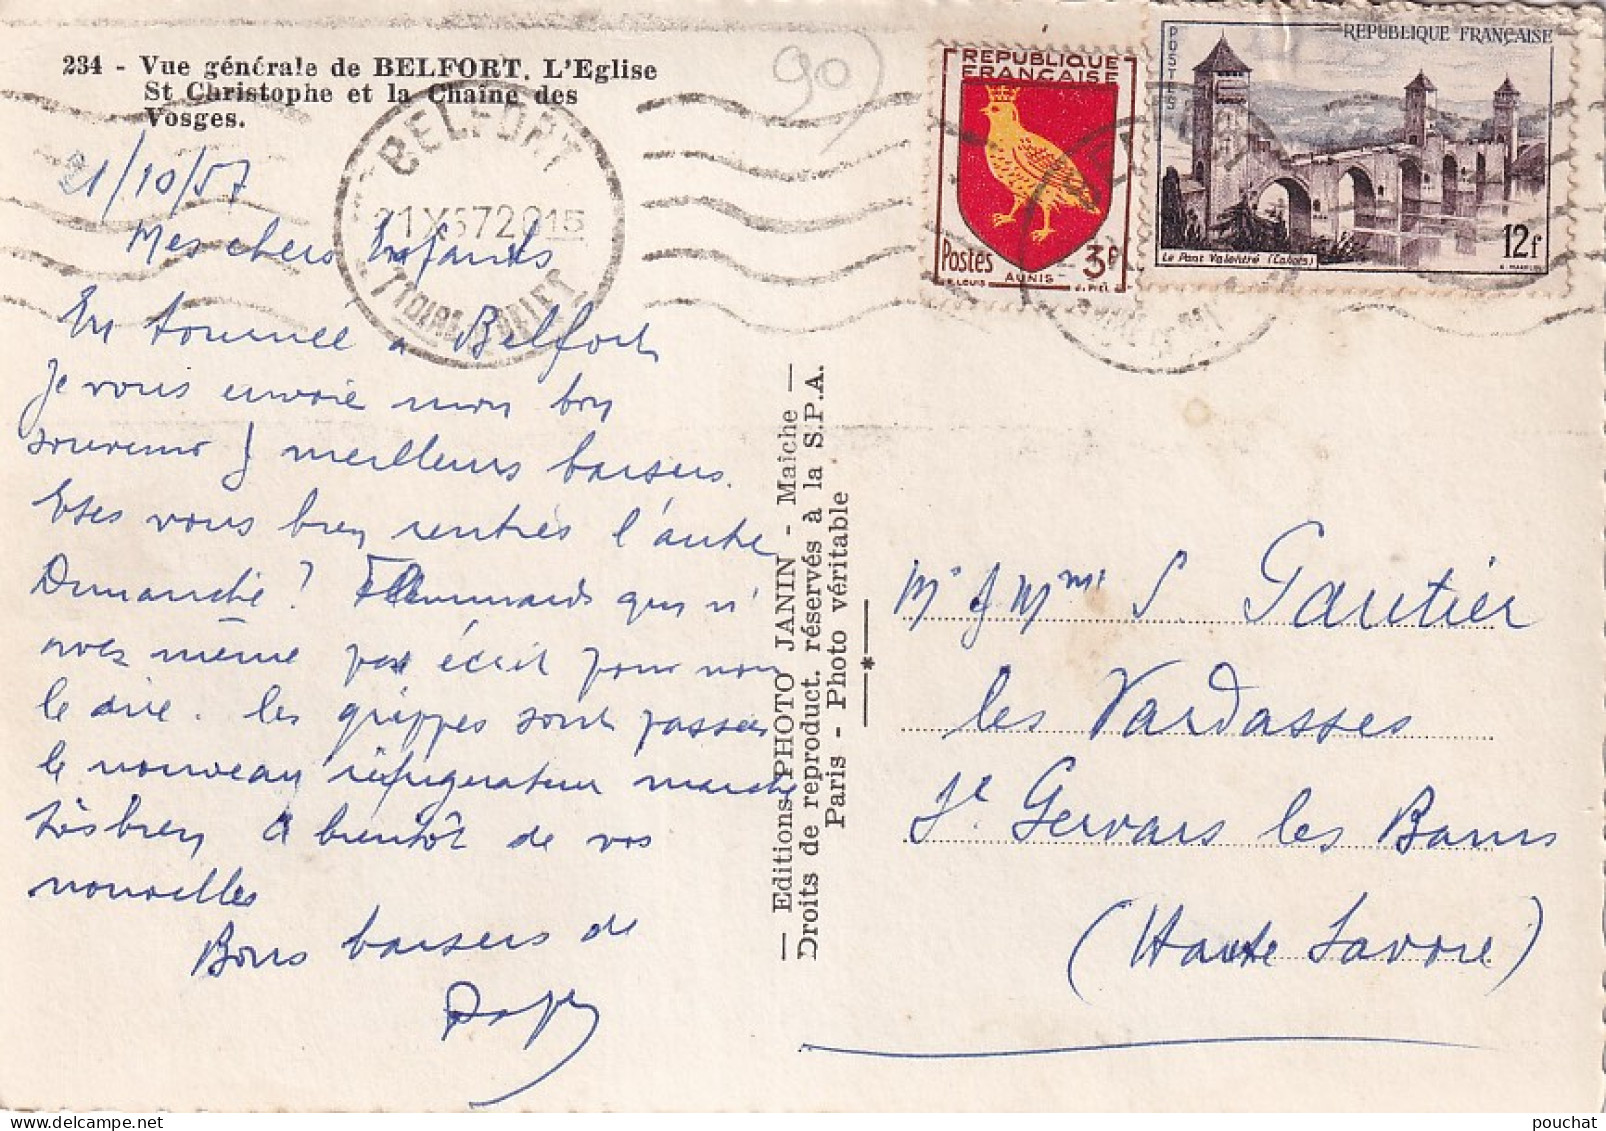 234 - Vue générale de BELFORT. L'Eglise
St Christophe et la Chaîne des
Vosges.
21/10/57
BELFORT
21 X 57 20 15
Mes chers Enfants
En tournée à Belfort
Je vous envoie mon bon
souvenir & meilleurs baisers.
Etes vous bien rentrés l'autre
Dimanche ? Flemmards qui n'
avez même pas écrit pour nous
le dire. Les grippes sont passées
le nouveau réfrigérateur marche
très bien A bientôt de vos
nouvelles
Bons baisers de
Papy
— Editions PHOTO JANIN - Maîche —
Droits de reproduct. réservés à la S.P.A.
Paris - Photo véritable
*
90
REPUBLIQUE
FRANÇAISE
Postes
3F
AUNIS
R. LOUIS
J. PIEL
REPUBLIQUE FRANÇAISE
POSTES
Le Pont Valentré (Cahors)
12f
Mr & Mme S. Gautier
les Vardasses
St Gervais les Bains
(Haute Savoie)
pouchat